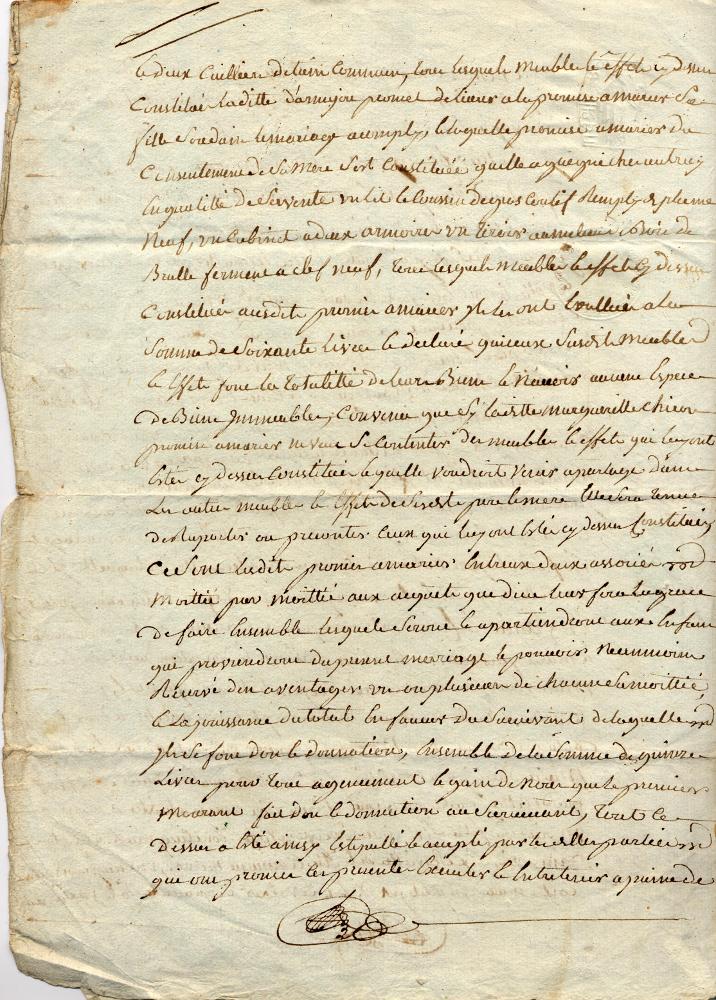 et deux Cuilliere d'etain Commun, tous lesquels Meubles et effets cy dessus
Constitué laditte d'armajou promet delivrer a la promise a marier Sa
fille Soudain le mariage acomply, et laquelle promise a marier du
Consentement de Sa Mere Sest Constituée quelle a gaigné ches autruy
En qualitté de Servente un lit et Coussin de gros Coutif Remply de plume
Neuf, un Cabinet a deux armoires un tiroir au milieu Bois de
fermant a Clef neuf, tous lesquels Meubles et effets Cy dessus
Constitué ausdits promis a marier ils les ont Evallués a la
Somme de Soixante Livres et declaré que iceux Susdits Meubles
et Effets font la totalitté de leurs Biens et N'avoir aucune Espece
de Biens Immeubles, Convenu que Sy laditte margueritte
promise a marier ne veut Se Contenter des meubles et effets qui luy ont
Etés cy dessus Constitués et quelle voudroit venir a partage dans
Les autres meubles et Effets de Sesdits pere et mere Elle Sera tenue
de Raporter ou precontes Ceux qui luy ont Etés cy dessus Constitués
Ce Sont lesdits promis a mariers Entreux deux associés
Moittié par Moittié aux acquets que dieu leur fera la grace
de faire Ensemble lesquels Seront et apartiendront aux Enfans
qui proviendront du present marriage et pouvoir Neanmoins
Reservé d'en aventager un ou plusieurs de chacun Sa moittié
et La jouissance du total En faveur du Survivant de laquelle
Ils Se font don et donnation, Ensemble de la Somme de quinze
Livres pour tout agencement et gain de Noces que le premier
Mourant fait don et donnation au Survivant, tout Ce
dessus a Eté ainsy Estipullé et accepté par les parties
qui ont promis Ces presentes Executer et Entretenir a peine de